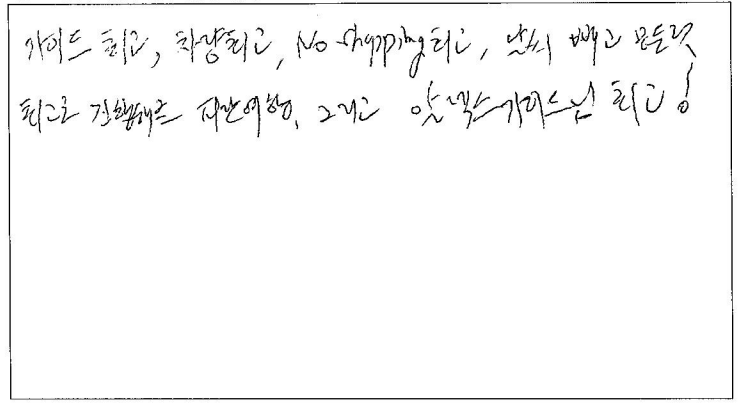 가이드 최고, 차량최고, No shopping 최고, 날씨 빼고 모든것
최고로 진행해준 여행, 그리고 알렉스가이드님 최고!